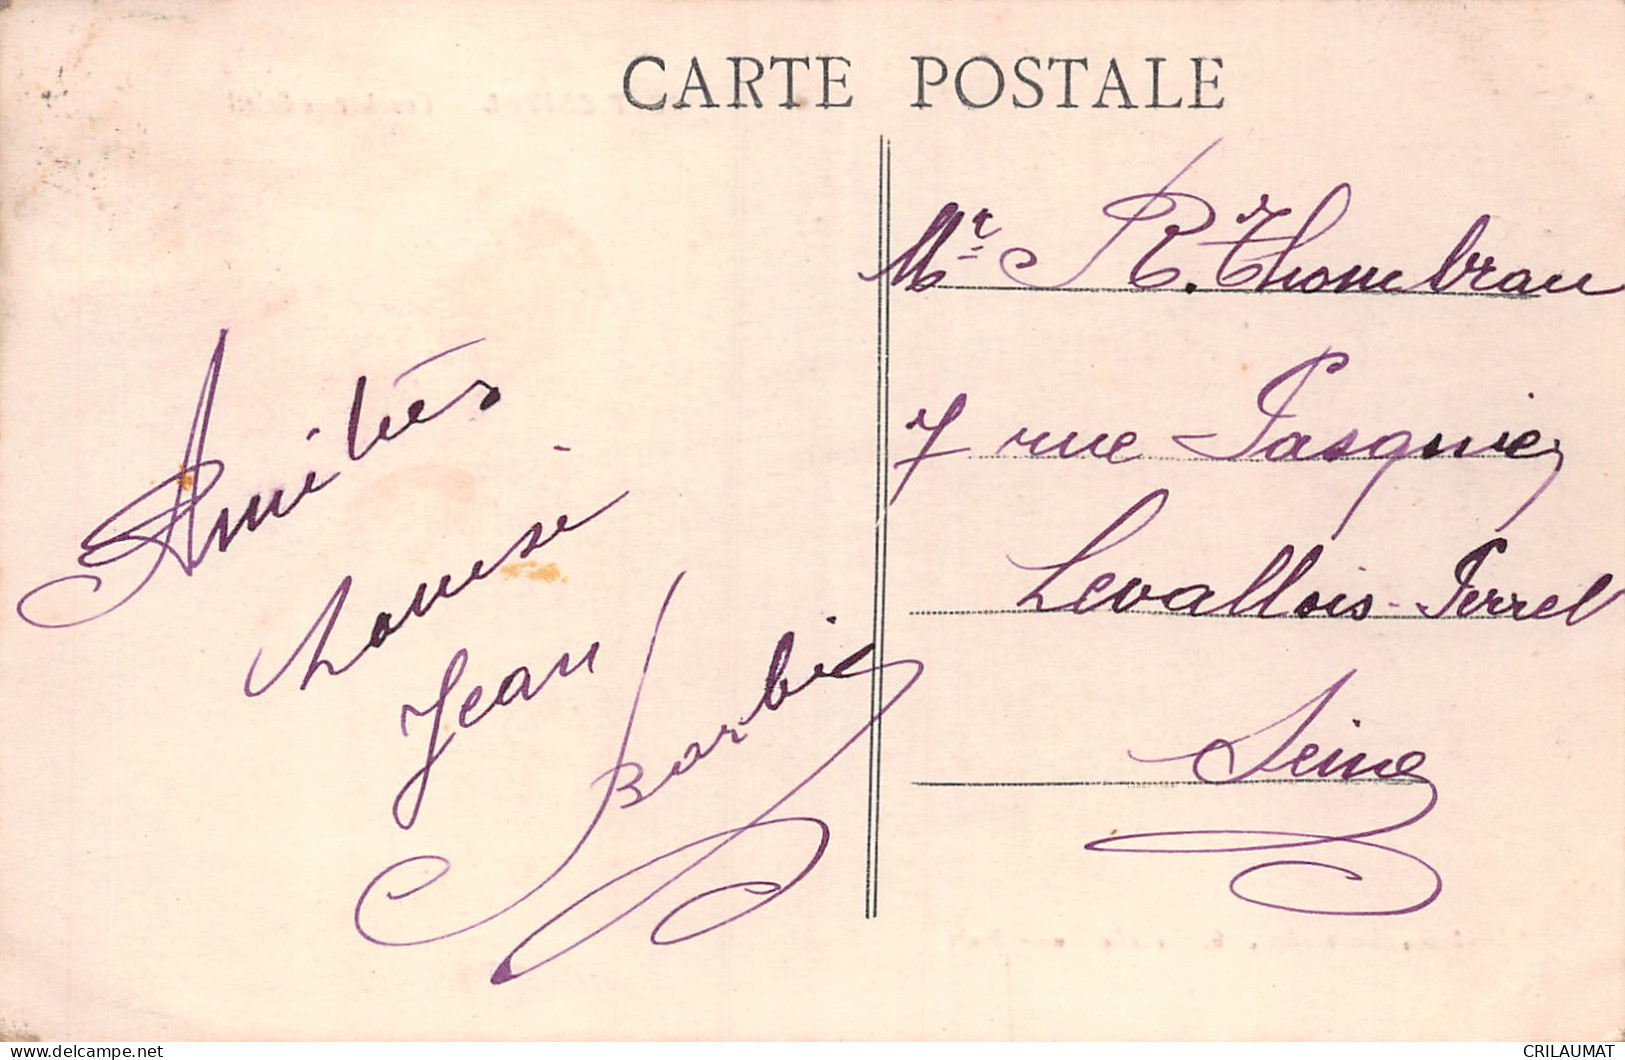 CARTE POSTALE
Amitiés
Louise
Jean
Barbier
Mr R. Thombrau
7 rue Pasquier
Levallois-Perret
Seine
www.delcampe.net
CRILAUMAT